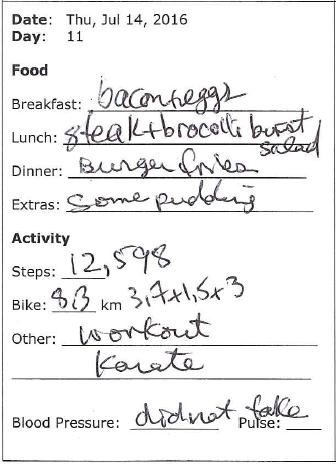 Date: Thu, Jul 14, 2016
Day: 11
Food
Breakfast: bacon+eggs
Lunch: steak+brocolli
salad
Dinner: Burger fries
Extras: Some pudding
Activity
Steps: 12,598
Bike: 8.3 km 3,7x1,5x3
Other: workout
Karate
Blood Pressure: did not take Pulse: